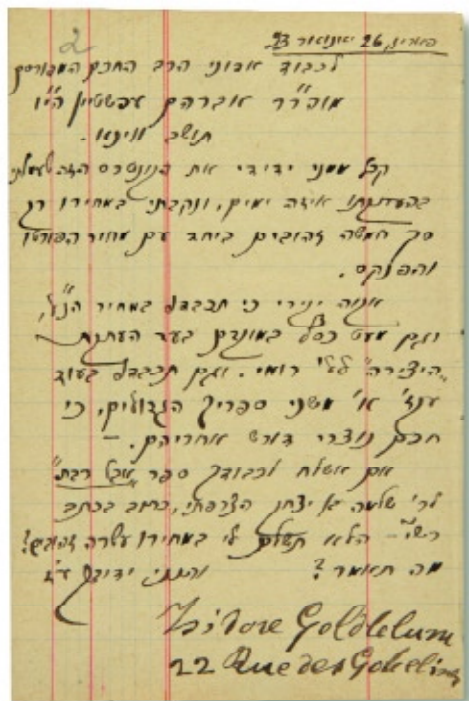 2
פאריז, 26 יאנואר 93
לכבוד אדוני הרב החכם המפורסם
מוה״ר אברהם עפשטיין הי״ו
תושב ווינא.
קבל ממני ידידי את הקונטרס הזה שעמלתי
בהעתקתו איזה ימים, ונקבתי במחירו רק
סך חמשה זהובים ביחד עם מחיר הפורטו
והפנקס.
אקוה יקירי כי תכבדני במחיר הנ״ל,
וגם מעט כסף במוקדם בעד העתקת
״היצירה״ לר׳ רומי. וגם תכבדני בעוד
עקז׳ א׳ משני ספריך הגדולים, כי
חכם נוצרי דורש אחריהם. –
אם אשלח לכבודך ספר ״אבל רבתי״
לר׳ שלמה בן יצחק הצרפתי, כתוב בכתב
רש״י – הלא תשלם לי במחירו עשרה זהובים?
מה תאמר? והנני ידידך
Isidore Goldblum
22 Rue des Gobelins